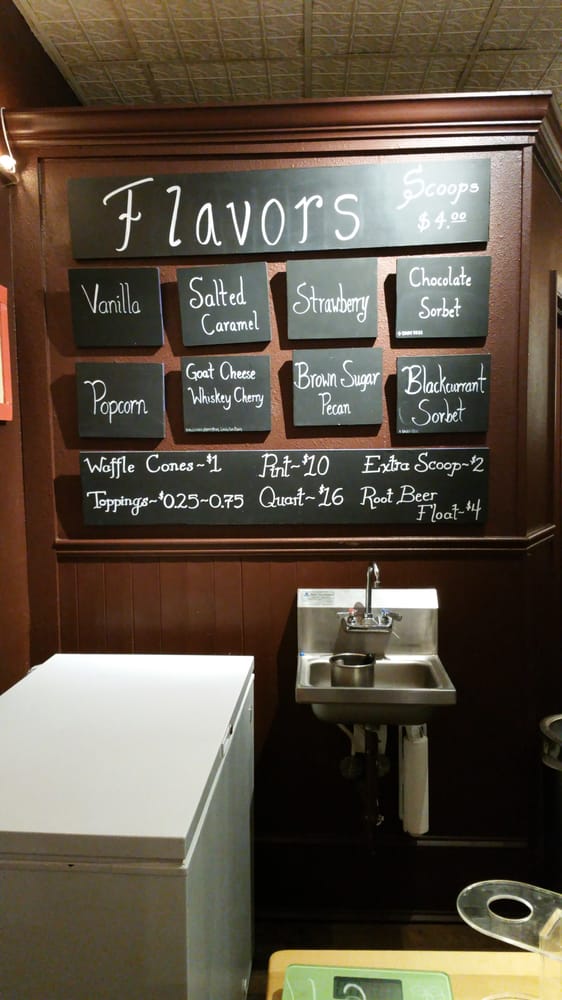 Flavors
Scoops
$4.00
Vanilla
Salted
Caramel
Strawberry
Chocolate
Sorbet
Popcorn
Goat Cheese
Whiskey Cherry
Brown Sugar
Pecan
Blackcurrant
Sorbet
Waffle Cones~$1
Pint~$10
Extra Scoop~$2
Toppings~$0.25~0.75
Quart~$16
Root Beer
Float~$4